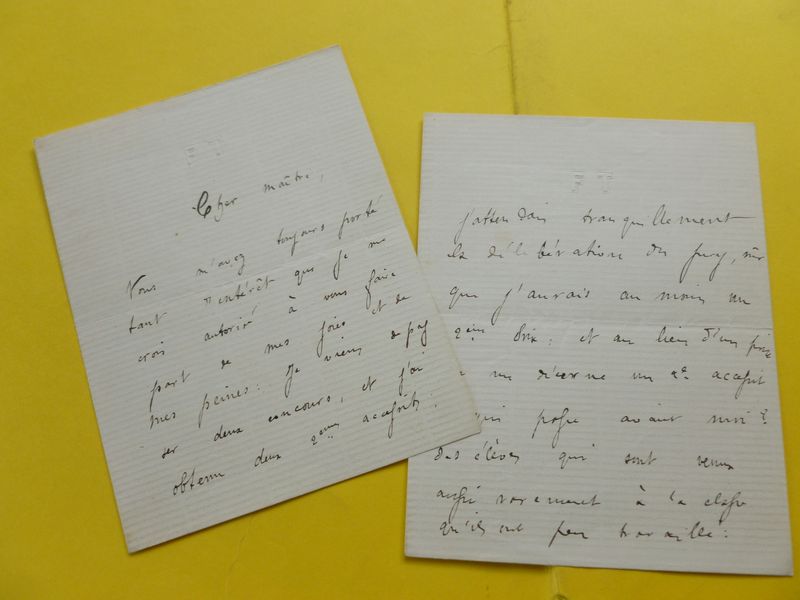 F T
Cher maître,
Vous m'avez toujours porté
tant d'intérêt que je me
crois autorisé à vous faire
part de mes joies et de
mes peines. Je viens de pas
ser deux concours, et j'ai
obtenu deux 2emes accessits.
F T
j'attendais tranquillement
la délibération du jury, sûr
que j'aurais au moins un
2eme Prix; et au lieu d'un prix
un décerne un 2e accessit
avant moi
des élèves qui sont venus
aussi rarement à la classe
qu'ils ont peu travaillé.